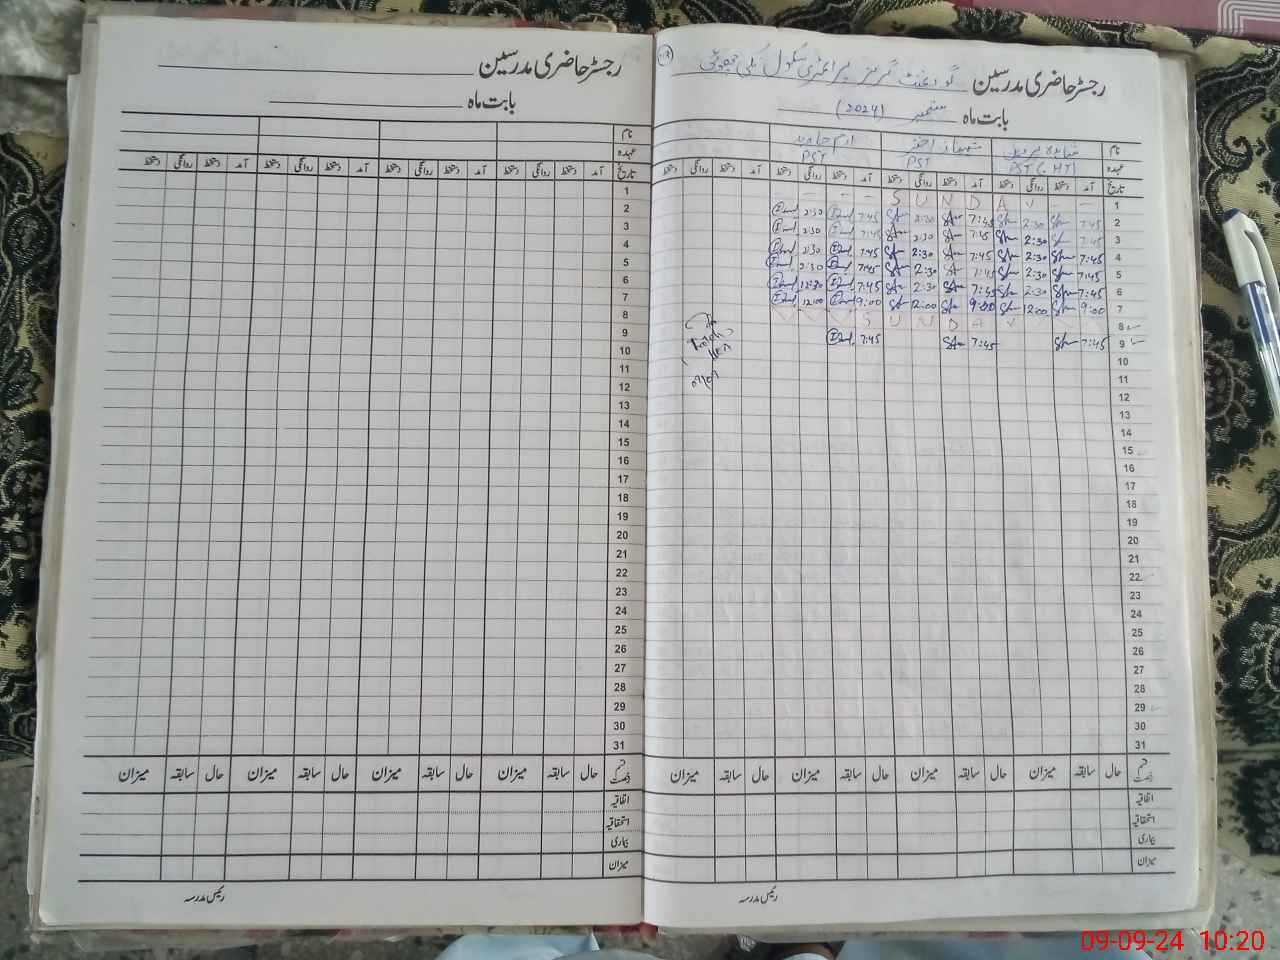 رجسٹر حاضری مدرسین گورنمنٹ گرلز پرائمری سکول
بابت ماہ ستمبر (2024)
نام شاہدہ پروین شہناز اختر ارم جاوید
عہدہ PST (HT) PST PST
تاریخ آمد دستخط روانگی دستخط آمد دستخط روانگی دستخط آمد دستخط روانگی دستخط آمد دستخط روانگی دستخط
1 S U N D A Y
2 7:45 2:30 7:45 2:30 7:45 2:30
3 7:45 2:30 7:45 2:30 7:45 2:30
4 7:45 2:30 7:45 2:30 7:45 2:30
5 7:45 2:30 7:45 2:30 7:45 2:30
6 7:45 2:30 7:45 2:30 7:45 12:30
7 9:00 12:00 9:00 12:00 9:00 12:00
8 S U N D A Y
9 7:45 7:45 7:45
10
11
12
13
14
15
16
17
18
19
20
21
22
23
24
25
26
27
28
29
30
31
قسم رخصت حال سابقہ میزان حال سابقہ میزان حال سابقہ میزان حال سابقہ میزان
اتفاقیہ
استحقاقیہ
بیماری
میزان
رئیس مدرسہ
رجسٹر حاضری مدرسین
بابت ماہ
نام
عہدہ
تاریخ آمد دستخط روانگی دستخط آمد دستخط روانگی دستخط آمد دستخط روانگی دستخط آمد دستخط روانگی دستخط
1
2
3
4
5
6
7
8
9
10
11
12
13
14
15
16
17
18
19
20
21
22
23
24
25
26
27
28
29
30
31
قسم رخصت حال سابقہ میزان حال سابقہ میزان حال سابقہ میزان حال سابقہ میزان
اتفاقیہ
استحقاقیہ
بیماری
میزان
رئیس مدرسہ
09-09-24 10:20